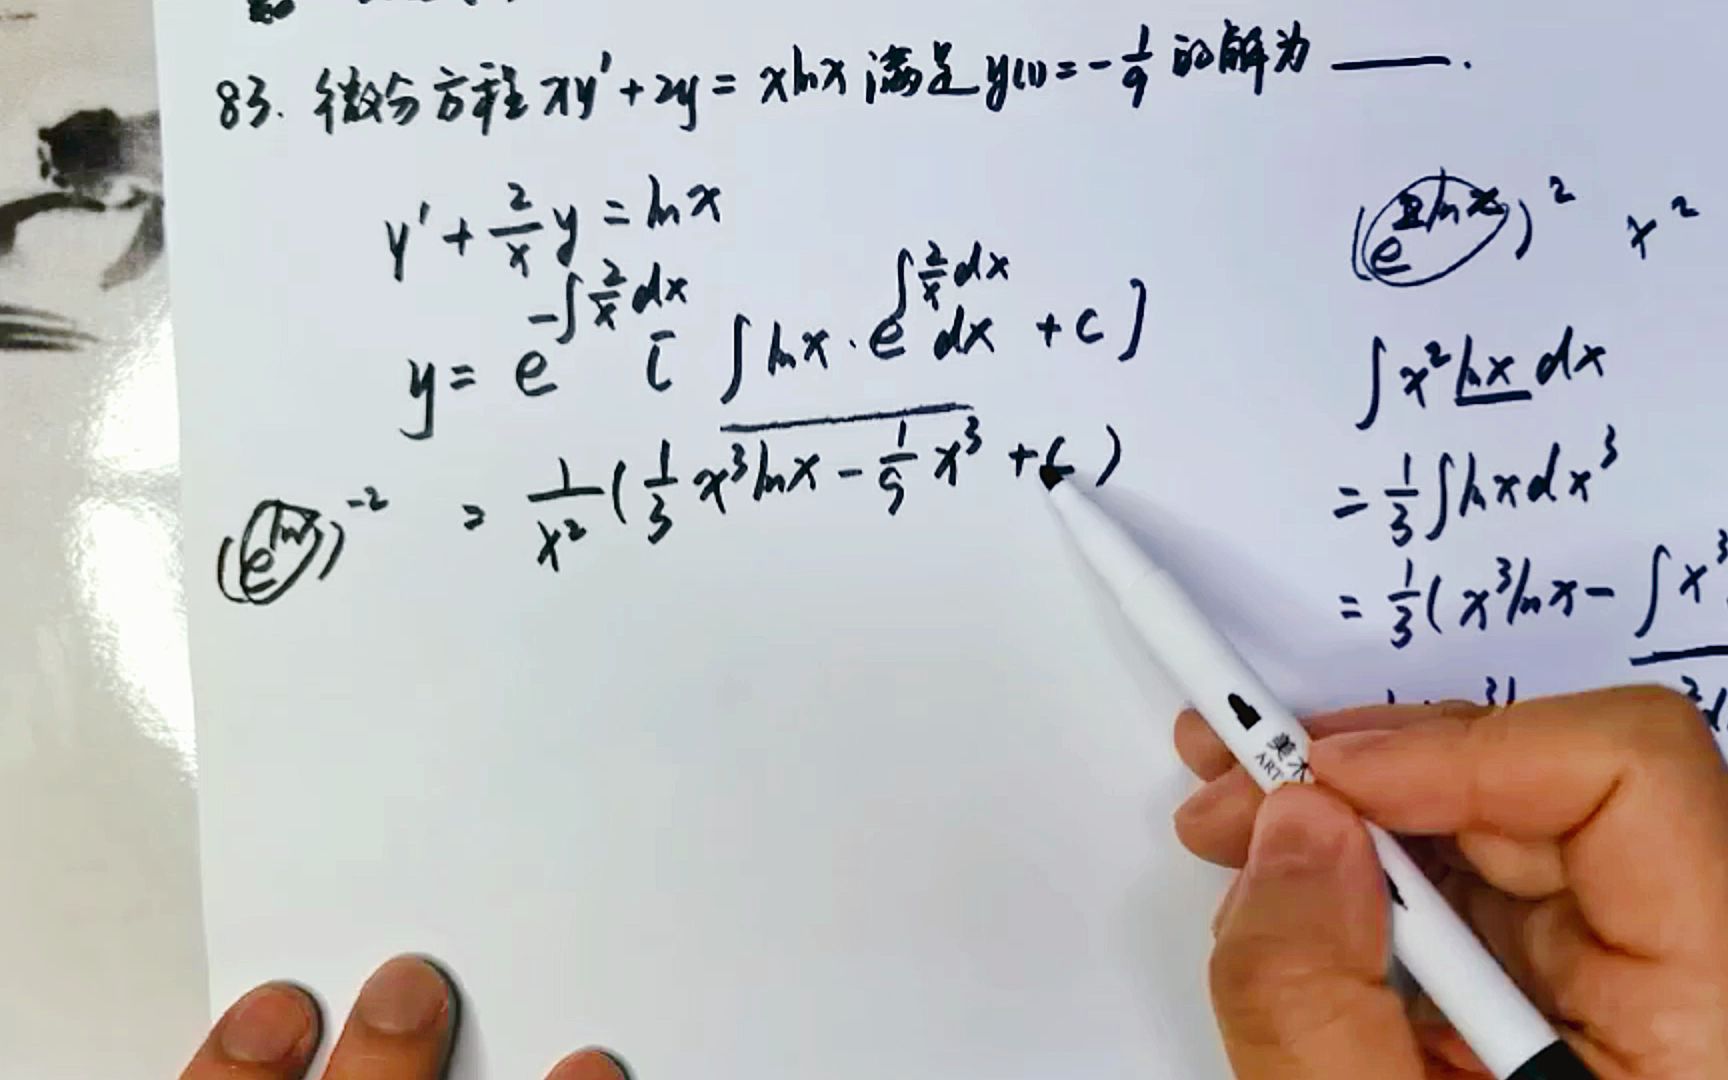 83. 微分方程 xy' + 2y = x ln x 满足 y(1) = -1/9 的解为 ____.
y' + 2/x y = ln x
y = e^(-∫ 2/x dx) [ ∫ ln x · e^(∫ 2/x dx) dx + C ]
(e^(ln x))^-2 = 1/x² ( 1/3 x³ ln x - 1/9 x³ + C )
(e^(ln x))² x²
∫ x² ln x dx
= 1/3 ∫ ln x dx³
= 1/3 ( x³ ln x - ∫ x³
美术
ART